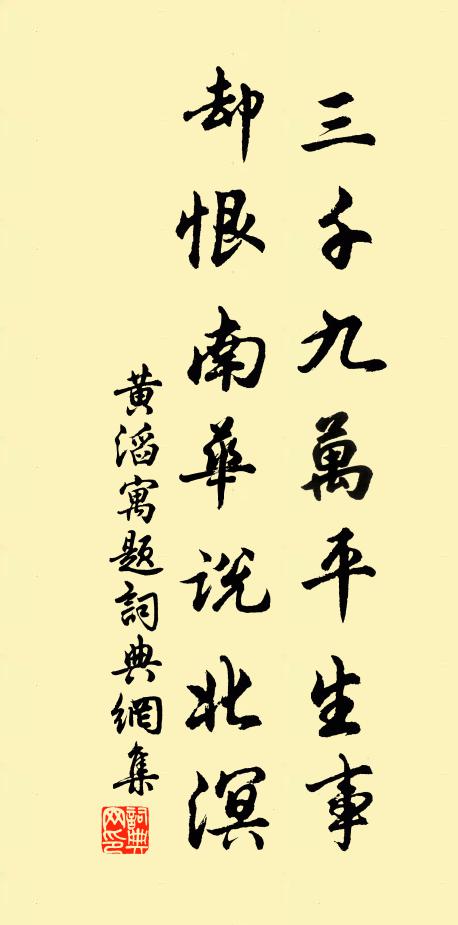 三千九萬平生事
却恨南華說北溟
黃滔寓題詞典網集
詞典网印